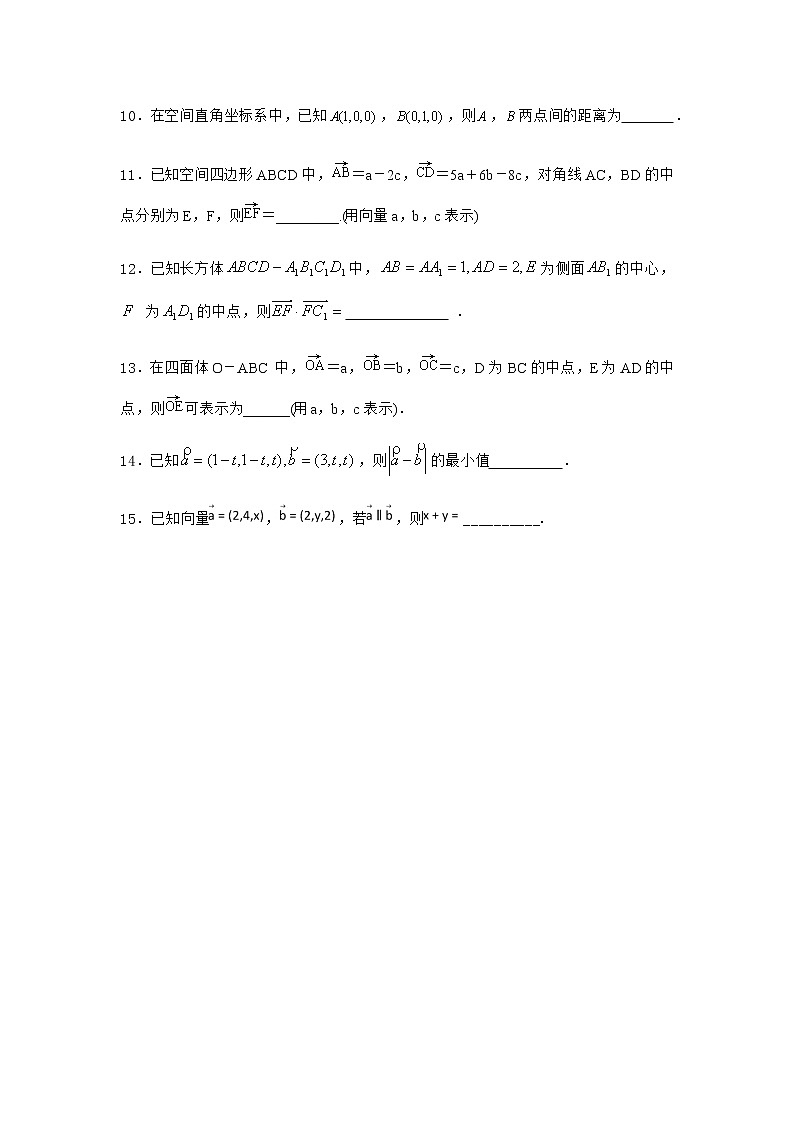 10．在空间直角坐标系中，已知 A(1,0,0)，B(0,1,0)，则 A，B 两点间的距离为_______．
11．已知空间四边形 ABCD 中，\overrightarrow{AB}＝a－2c，\overrightarrow{CD}＝5a＋6b－8c，对角线 AC，BD 的中
点分别为 E，F，则\overrightarrow{EF}＝________.(用向量 a，b，c 表示)
12．已知长方体 ABCD－A₁B₁C₁D₁ 中，AB = AA₁ = 1, AD = 2, E 为侧面 AB₁ 的中心，
F 为 A₁D₁ 的中点，则\overrightarrow{EF}·\overrightarrow{FC₁} = ______________ ．
13．在四面体 O－ABC 中，\overrightarrow{OA}＝a，\overrightarrow{OB}＝b，\overrightarrow{OC}＝c，D 为 BC 的中点，E 为 AD 的中
点，则\overrightarrow{OE}可表示为______(用 a，b，c 表示)．
14．已知 \overset{ρ}{a} = (1－t,1－t,t), \overset{ρ}{b} = (3,t,t)，则 |\overset{ρ}{a} － \overset{ρ}{b}| 的最小值__________．
15．已知向量\vec{a} = (2,4,x)，\vec{b} = (2,y,2)，若\vec{a} ∥ \vec{b}，则x + y = __________．